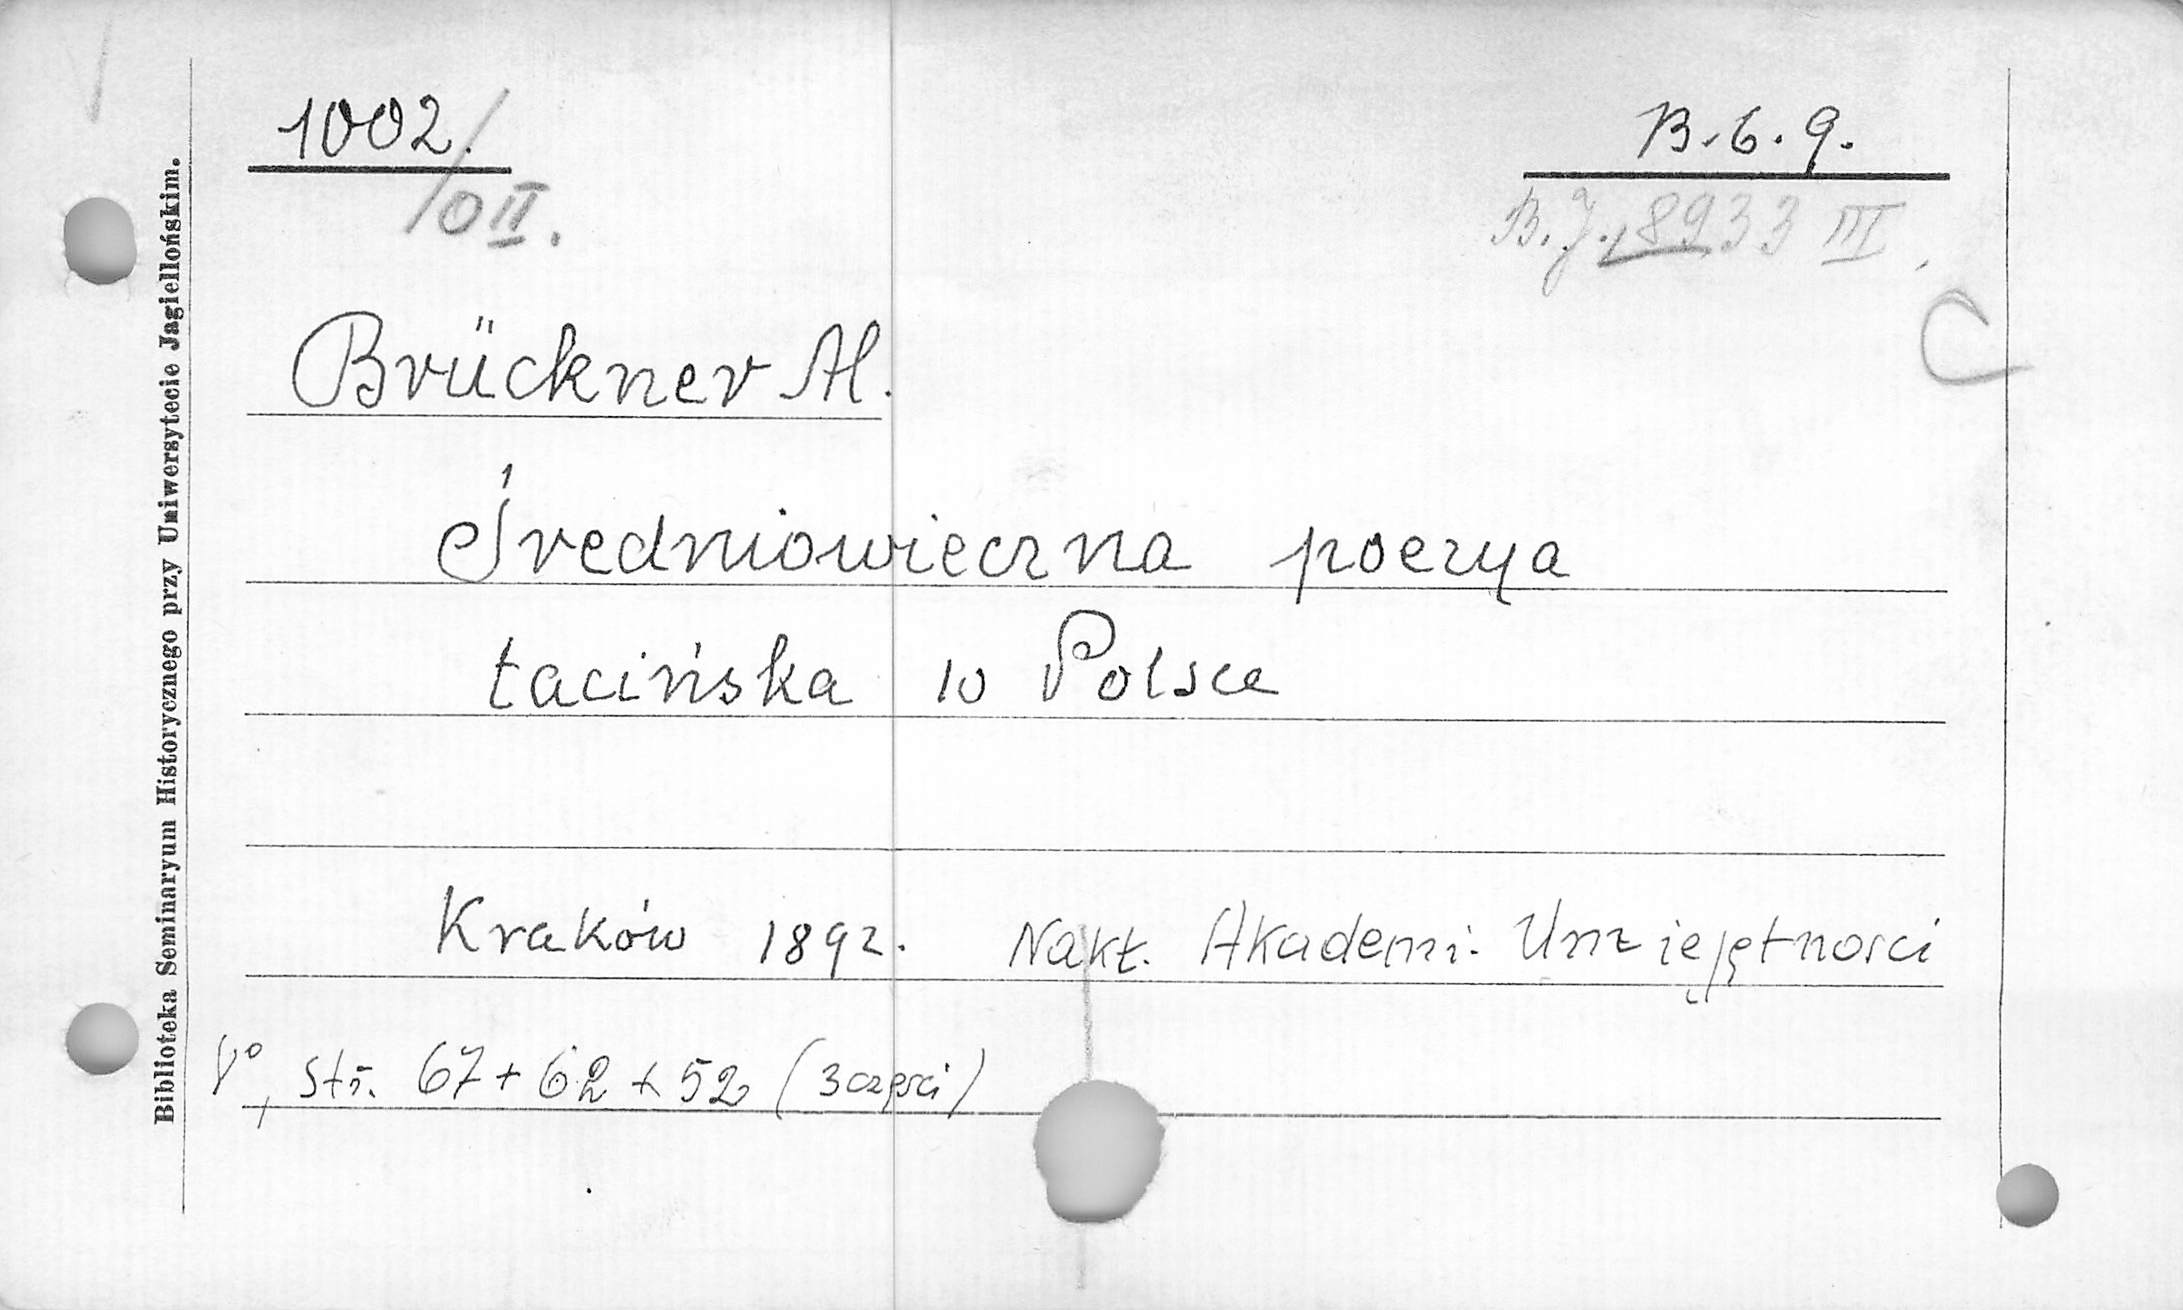 1002.
/0 II.
B. 6. 9.
B. J. 18933 III
C
Brückner Al.
Średniowieczna poezya
łacińska w Polsce
Kraków 1892. Nakł. Akademi. Umiejętności
8°, str. 67 + 62 + 52 (3 części)
Biblioteka Seminaryum Historycznego przy Uniwersytecie Jagiellońskim.